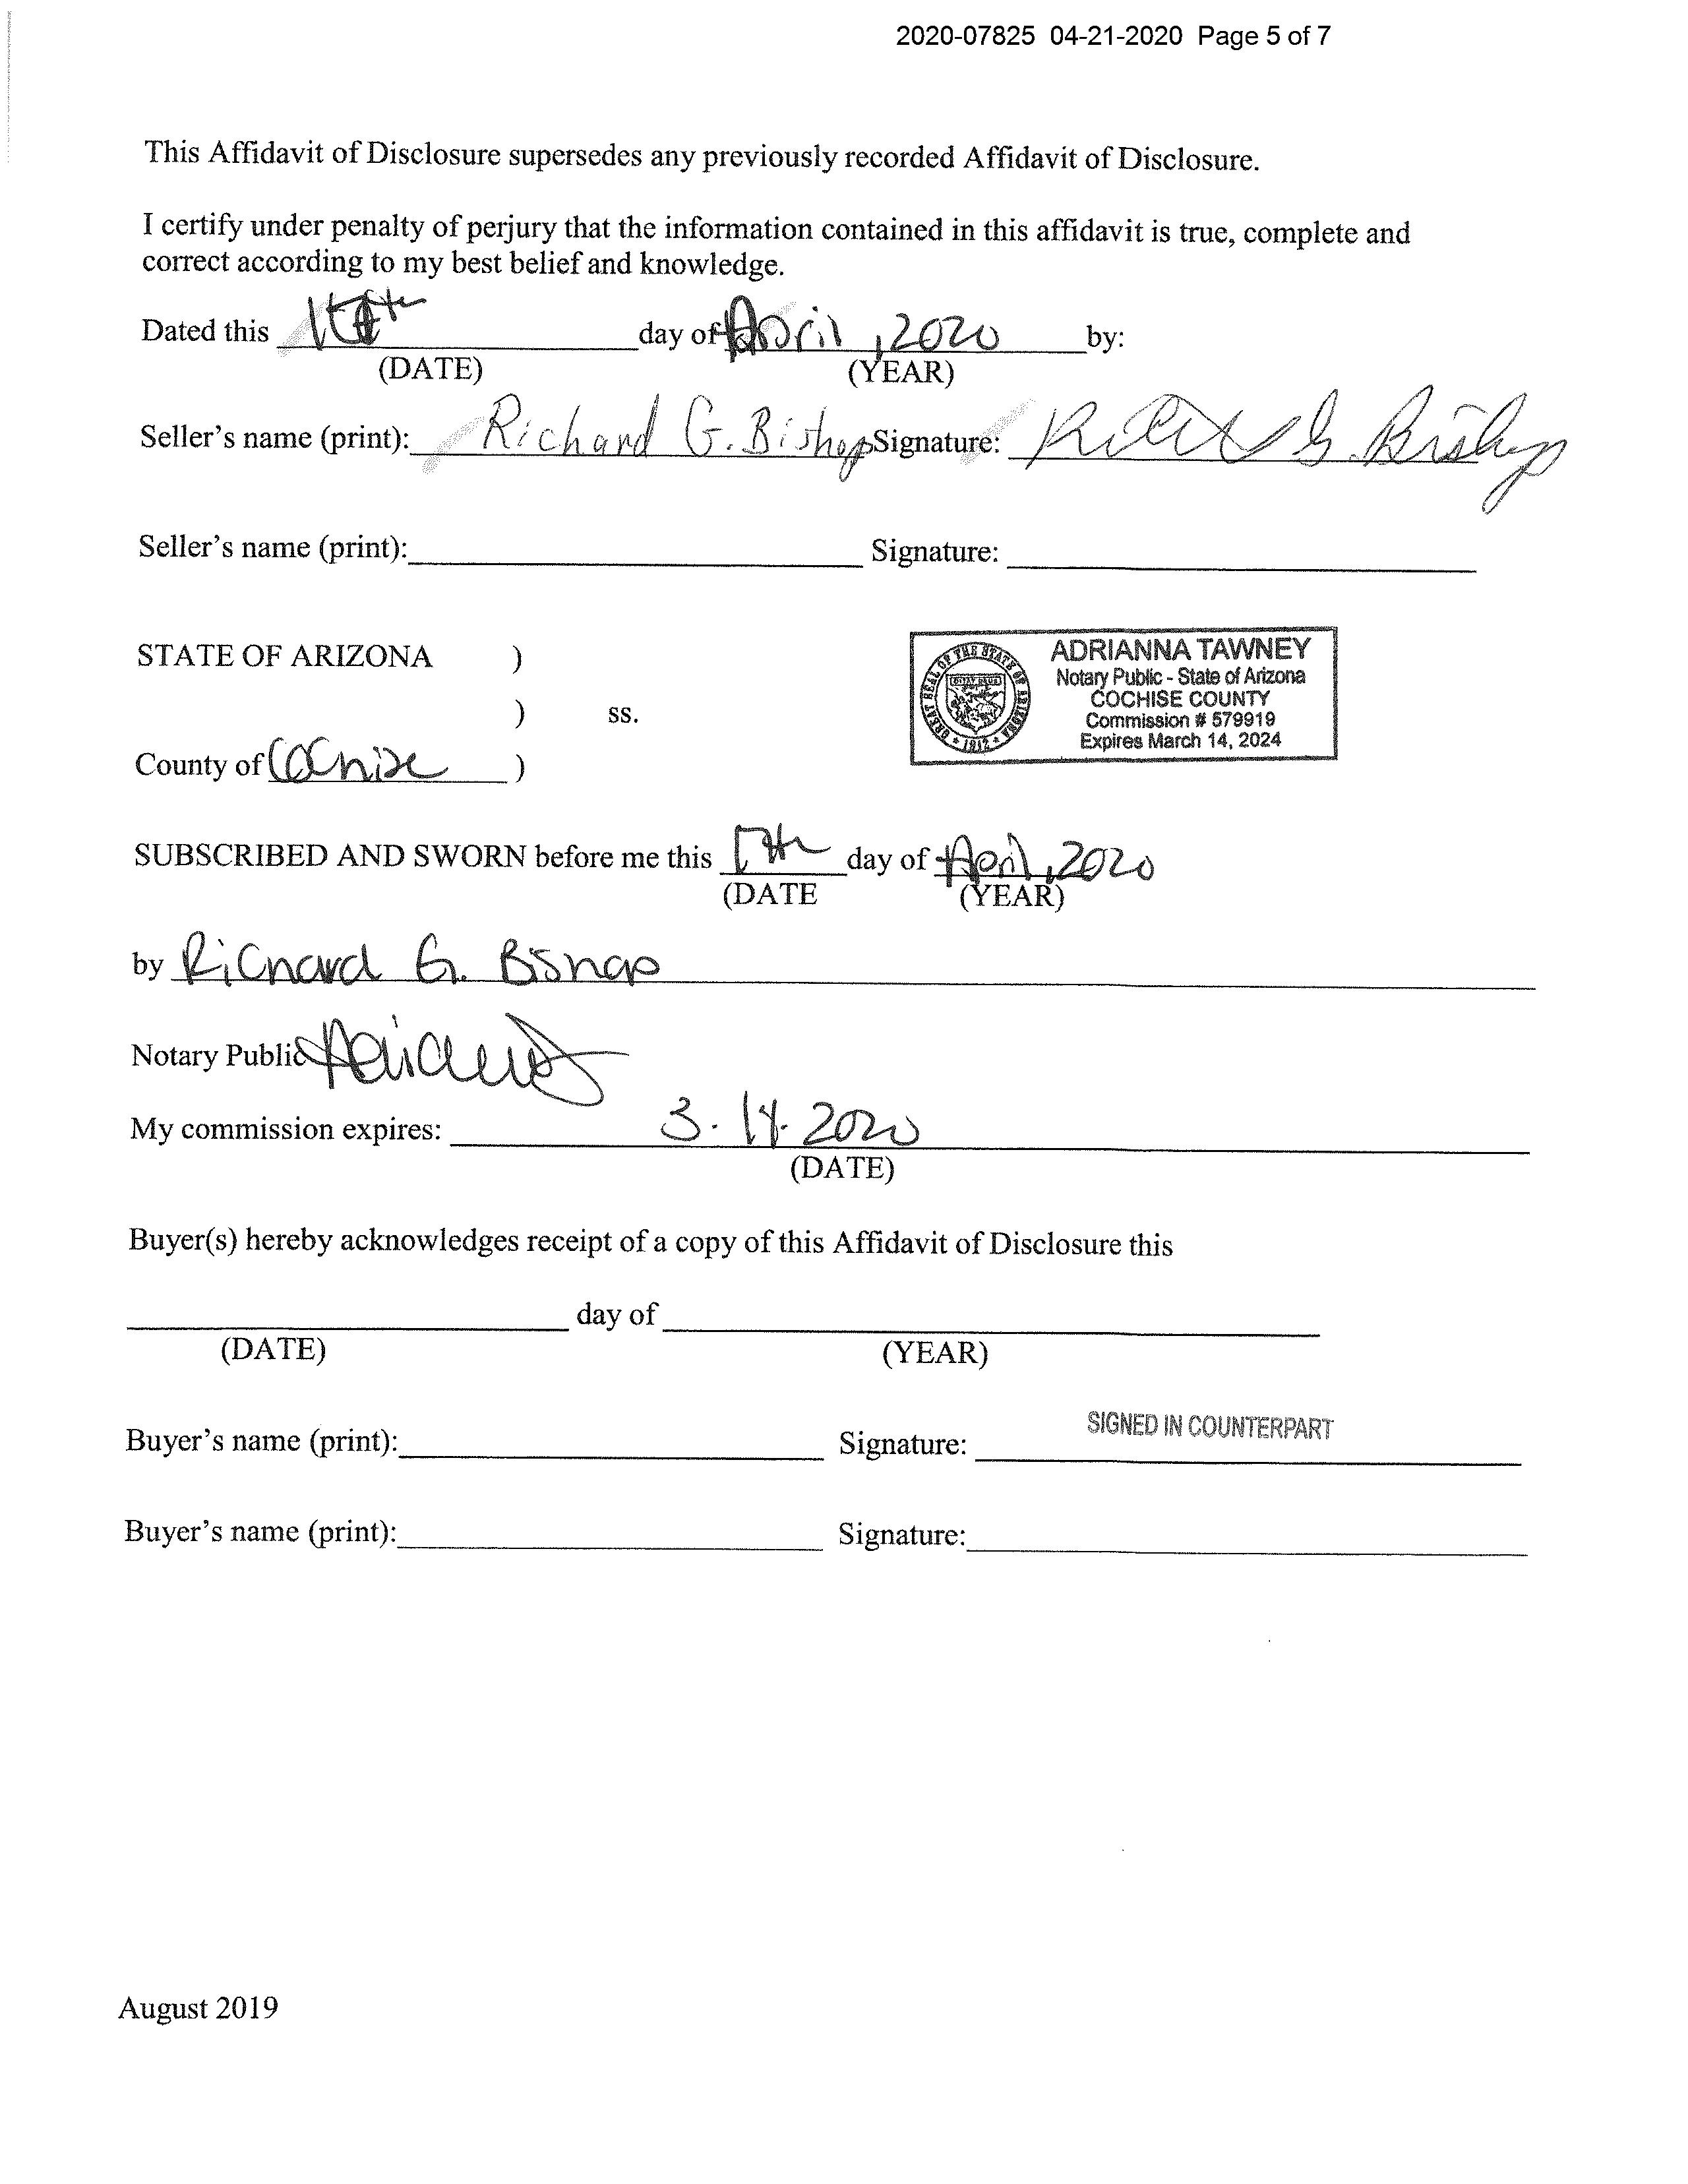 2020-07825 04-21-2020 Page 5 of 7
This Affidavit of Disclosure supersedes any previously recorded Affidavit of Disclosure.
I certify under penalty of perjury that the information contained in this affidavit is true, complete and
correct according to my best belief and knowledge.
Dated this day of April, 2020 by:
(DATE) (YEAR)
Seller's name (print): Richard G. Bishop Signature: Richard G. Bishop
Seller's name (print): Signature:
STATE OF ARIZONA )
) ss.
County of Cochise )
ADRIANNA TAWNEY
Notary Public - State of Arizona
COCHISE COUNTY
Commission # 579919
Expires March 14, 2024
GREAT SEAL OF THE STATE OF ARIZONA
1912
SUBSCRIBED AND SWORN before me this 17th day of April, 2020
(DATE (YEAR)
by Richard G. Bishop
Notary Public
My commission expires: 3.14.2020
(DATE)
Buyer(s) hereby acknowledges receipt of a copy of this Affidavit of Disclosure this
day of
(DATE) (YEAR)
Buyer's name (print): Signature: SIGNED IN COUNTERPART
Buyer's name (print): Signature:
August 2019